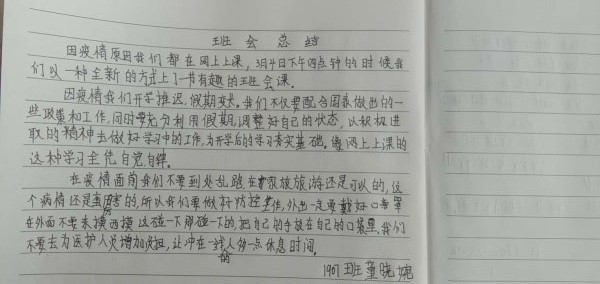 班会总结
因疫情原因我们都在网上上课，3月4日下午四点钟的时候我
们以一种全新的方式上了一节有趣的班会课。
因疫情我们开学推迟，假期变长。我们不仅要配合国家做出的一
些政策和工作，同时要充分利用假期，调整好自己的状态，以积极进
取的精神去做好学习中的工作，为开学后的学习夯实基础。像网上上课的
这种学习全凭自觉自律。
在疫情面前我们不要到处乱跑，在家族旅游还是可以的，这
个病情还是蛮厉害的，所以我们要做好防控工作，外出一定要戴好口罩
在外面不要东摸西摸这碰一下那碰一下的，把自己的手放在自己的口袋里，我们
不要去为医护人员增加负担，让冲在一线的人多一点休息时间。
1907班董晓婉